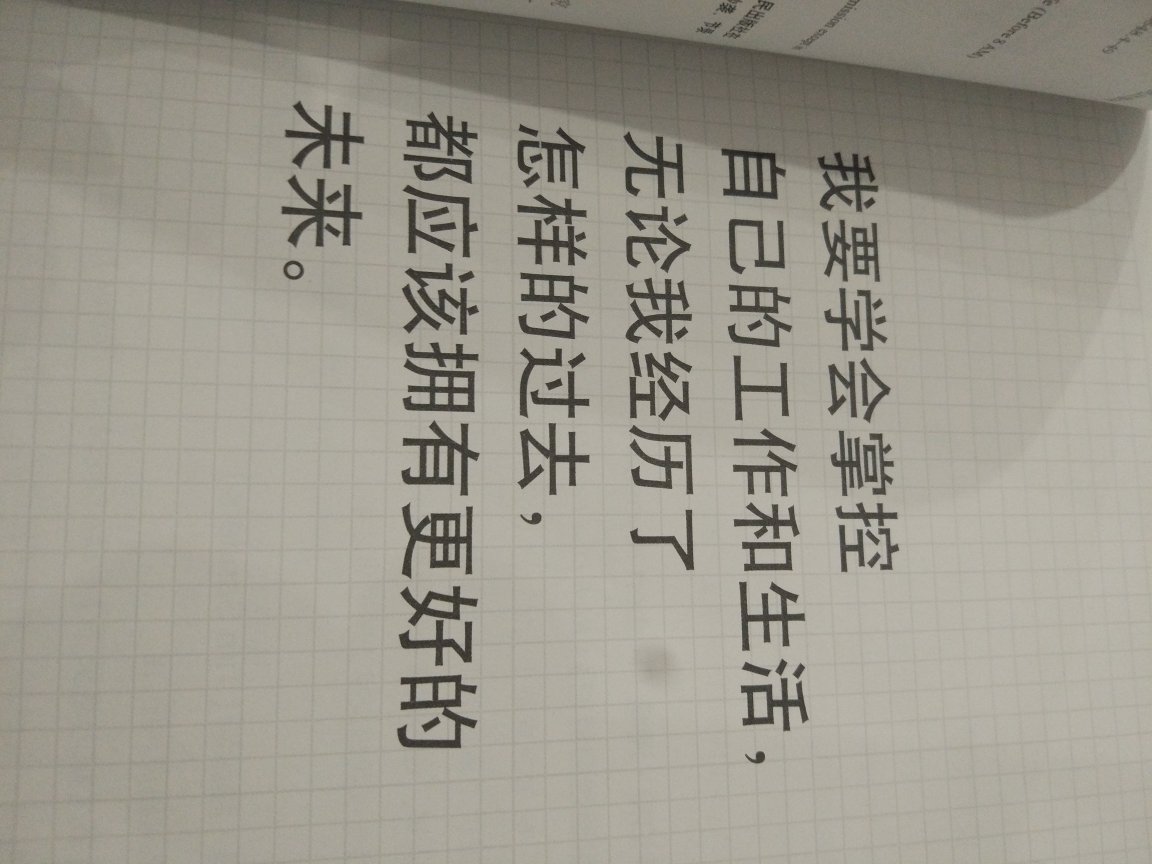 我要学会掌控
自己的工作和生活，
无论我经历了
怎样的过去，
都应该拥有更好的
未来。
(Before 8 AM)